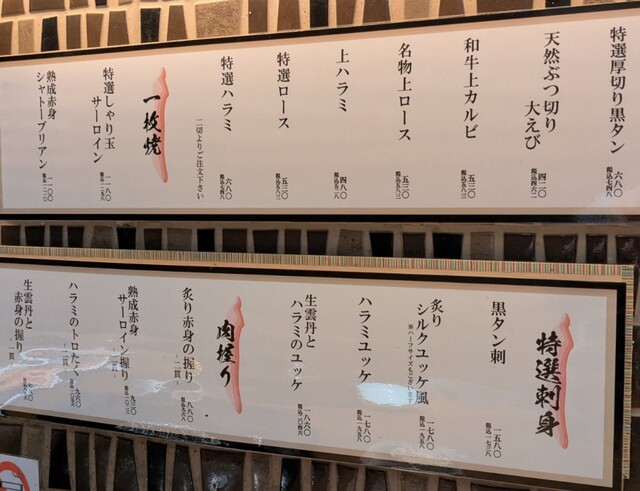 特選厚切り黒タン
六八〇
税込七四八
天然ぶつ切り
大えび
四二〇
税込四六二
和牛上カルビ
五三〇
税込五八三
名物上ロース
五三〇
税込五八三
上ハラミ
四八〇
税込五二八
特選ロース
五三〇
税込五八三
特選ハラミ
六八〇
税込七四八
二切よりご注文下さい
一枚焼
特選しゃり玉
サーロイン
一一八〇
税込一二九八
熟成赤身
シャトーブリアン
特選刺身
黒タン刺
一五八〇
税込一七三八
炙り
シルクユッケ風
※ハーフサイズもございます
一七八〇
税込一九五八
ハラミユッケ
一七八〇
税込一九五八
生雲丹と
ハラミのユッケ
一八六〇
税込二〇四六
肉握り
炙り赤身の握り
-二貫-
八八〇
税込九六八
熟成赤身
サーロイン握り
-二貫-
ハラミのトロたく
-二貫-
九六〇
生雲丹と
赤身の握り
-一貫-